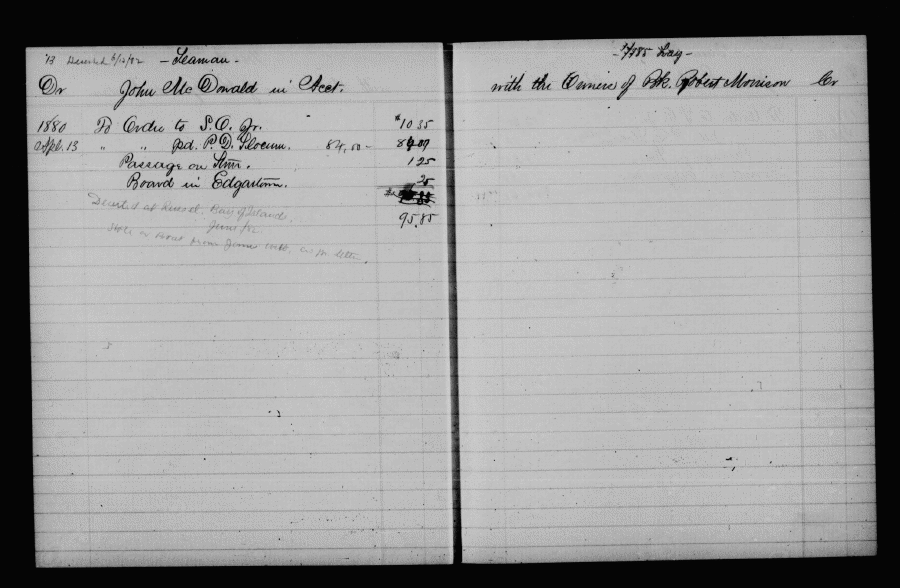 13 Deserted 6/12/82 - Seaman -
Dr John McDonald in Acct.
1880 To Order to S. O. Jr. $10 35
Apl. 13 " " pd. P. D. Slocum. 84.00 - 84 00
Passage on Stmr. 1 25
Board in Edgartown. 25
95.85
Deserted at Russel, Bay of Islands,
June/82
boat from
letter.
- 1/185 Lay -
with the Owners of Bk. Robert Morrison Cr